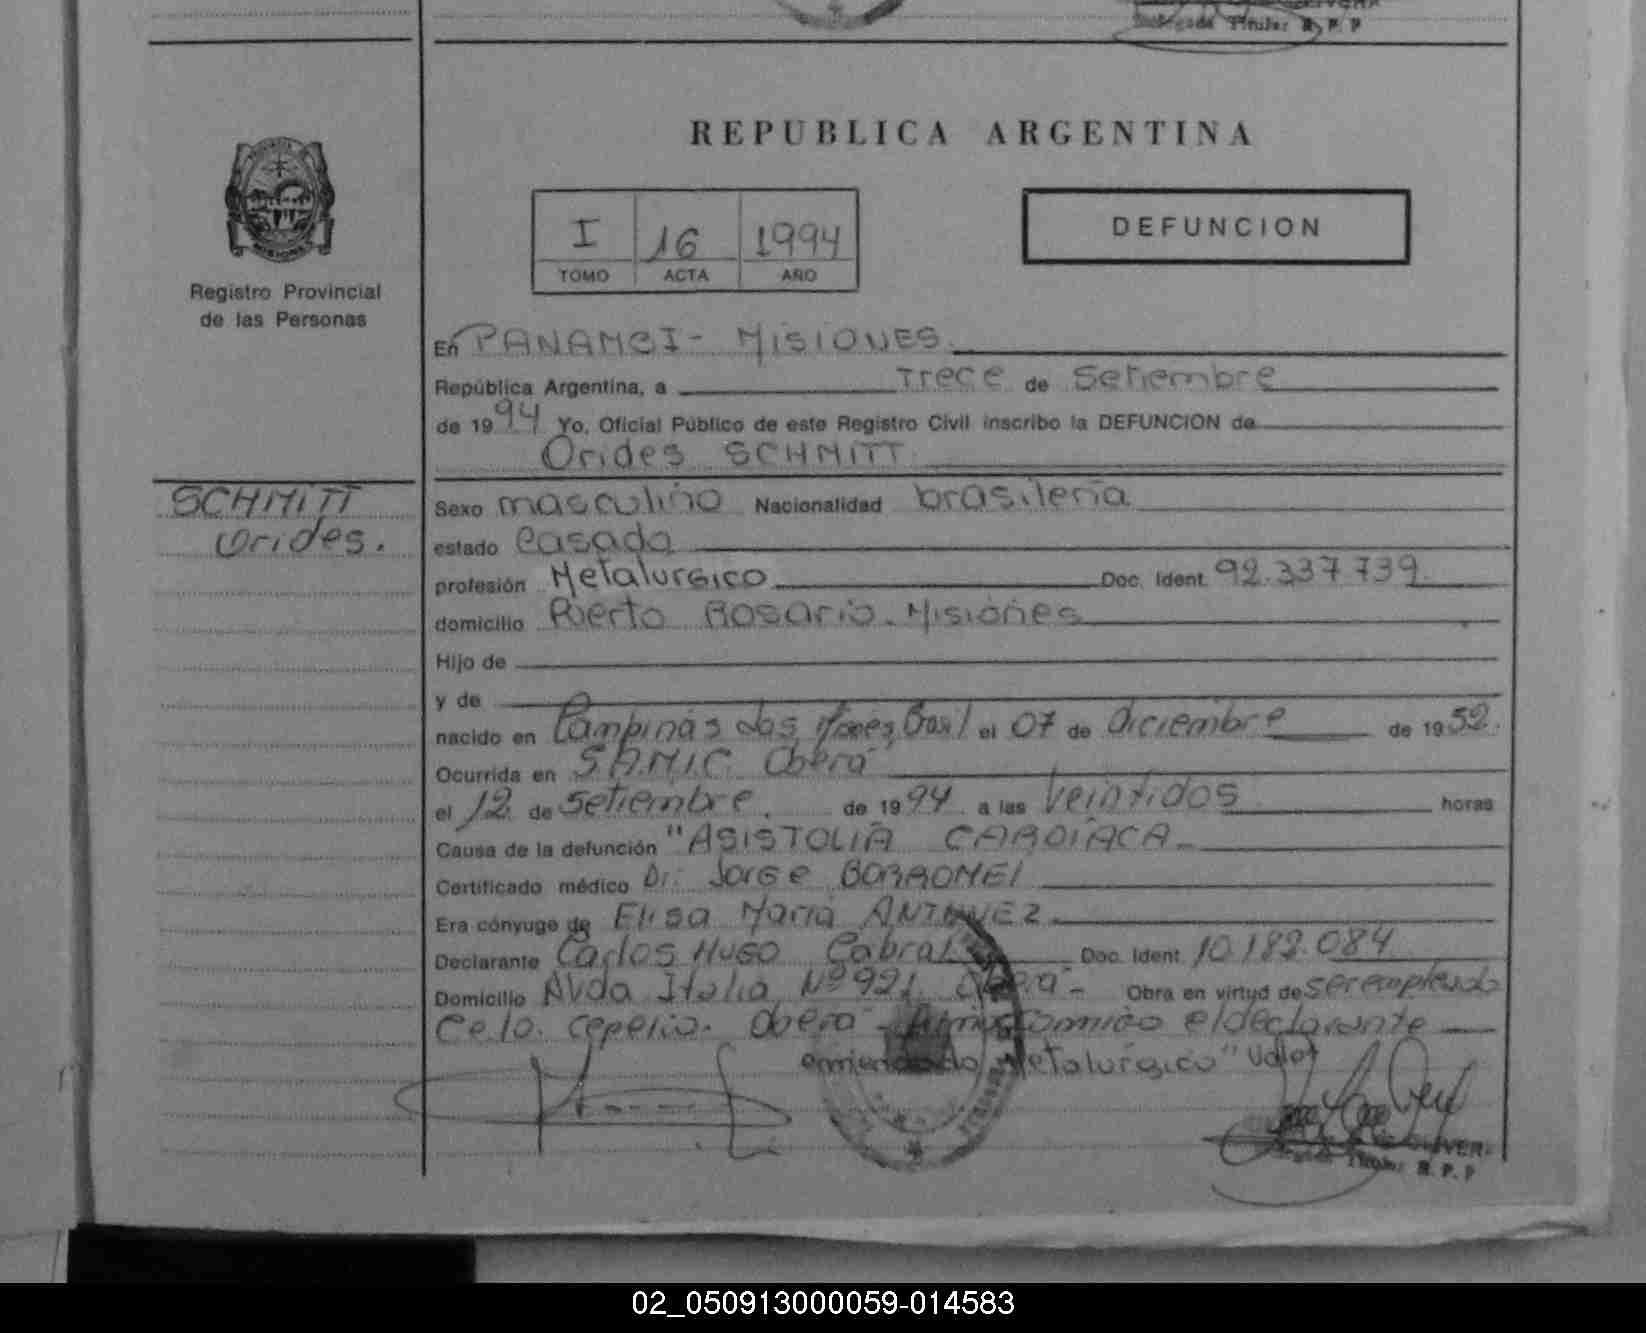 Titular R. P. P
REPUBLICA ARGENTINA
I 16 1994
TOMO ACTA AÑO
DEFUNCION
Registro Provincial
de las Personas
En PANAMBI - MISIONES.
República Argentina, a Trece de Setiembre
de 1994 Yo, Oficial Público de este Registro Civil inscribo la DEFUNCION de
Orides SCHMITT
SCHMITT
Orides.
Sexo masculino Nacionalidad brasileria
estado Casado
profesión Metalurgico Doc. Ident. 92.337.739.
domicilio Puerto Rosario. Misiones
Hijo de
y de
nacido en Campinas das Brasil el 07 de Diciembre de 1952.
Ocurrida en S.A.M.I.C. Oberá
el 12 de Setiembre de 1994 a las Veintidos horas
Causa de la defunción "ASISTOLIA CARDIACA
Certificado médico Dr: Jorge BORROMEI
Era cónyuge de Elisa Maria ANTUNEZ
Declarante Carlos Hugo Cabral Doc. Ident. 10.182.084
Domicilio Avda Italia Nº 921 Oberá - Obra en virtud de ser empleado
sepelio. Oberá - el declarante
enmendado Metalurgico" Vale
R. P. P
02_050913000059-014583